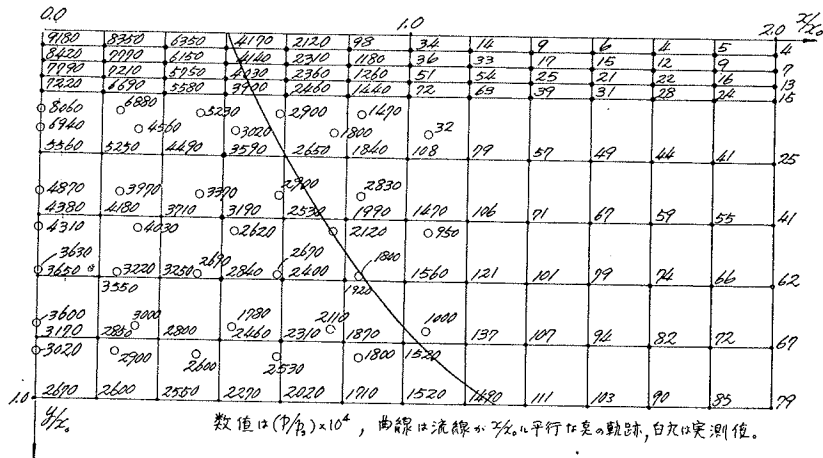 0.0 1.0 2.0 x/x₀
9180 8350 6350 4170 2120 98 34 14 9 6 4 5 4
8420 7770 6150 4140 2310 1180 36 33 17 15 12 9 7
7790 7210 5750 4030 2360 1260 51 54 25 21 22 16 13
7220 6690 5580 3900 2460 1440 72 63 39 31 28 24 15
8060 6880 5230 2900 1470
6940 4560 3020 1800 32
5560 5250 4490 3590 2650 1840 108 79 57 49 44 41 25
4870 3970 3370 2900 2830
4380 4180 3710 3190 2530 1990 1470 106 71 67 59 55 41
4310 4030 2620 2120 950
3630 2690 2670 1800
3650 3220 3250 2840 2400 1560 121 101 79 74 66 62
3550 1920
3600 3000 1780 2110 1000
3170 2850 2800 2460 2310 1870 137 107 94 82 72 67
3020 2900 2600 2530 1800 1520
1.0 2670 2600 2550 2270 2020 1710 1520 1480 111 103 90 85 79
y/x₀
数値は(P/P₃)×10⁴, 曲線は流線が x/x₀に平行な点の軌跡, 白丸は実測値。